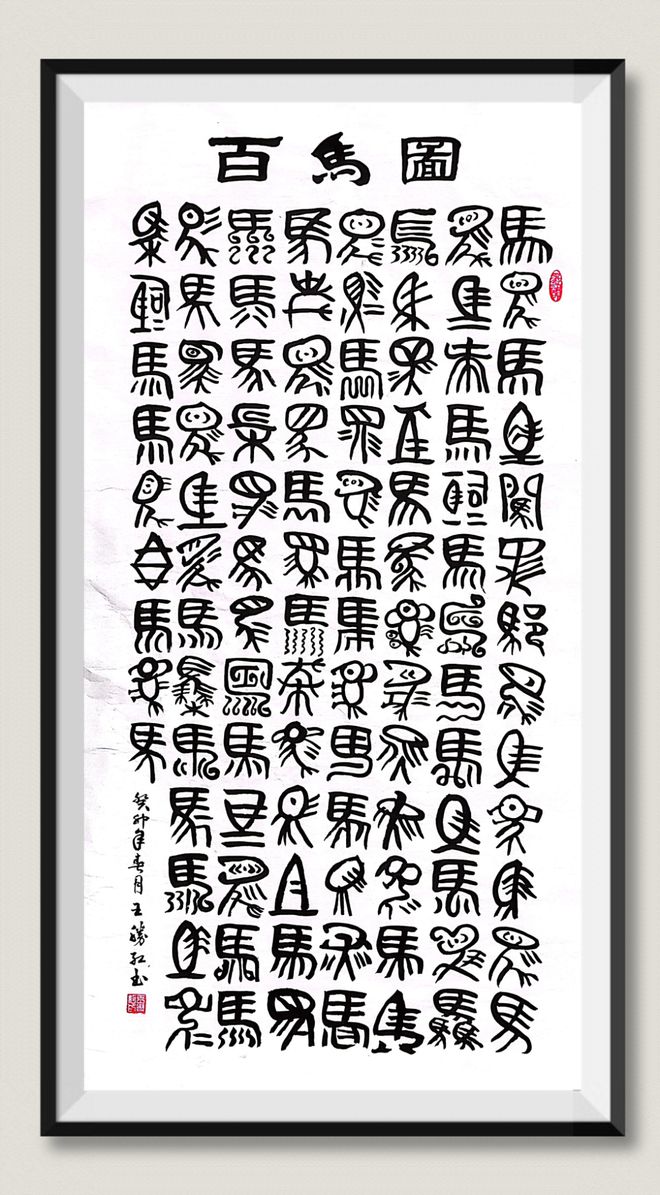 百馬圖
馬馬馬馬馬馬馬馬馬馬馬馬馬
馬馬馬馬馬馬馬馬馬馬馬馬馬
馬馬馬馬馬馬馬馬馬馬馬馬馬
馬馬馬馬馬馬馬馬馬馬馬馬馬
馬馬馬馬馬馬馬馬馬馬馬馬馬
馬馬馬馬馬馬馬馬馬馬馬馬馬
馬馬馬馬馬馬馬馬馬馬馬馬馬
馬馬馬馬馬馬馬馬馬
癸卯年春月王勝紅书